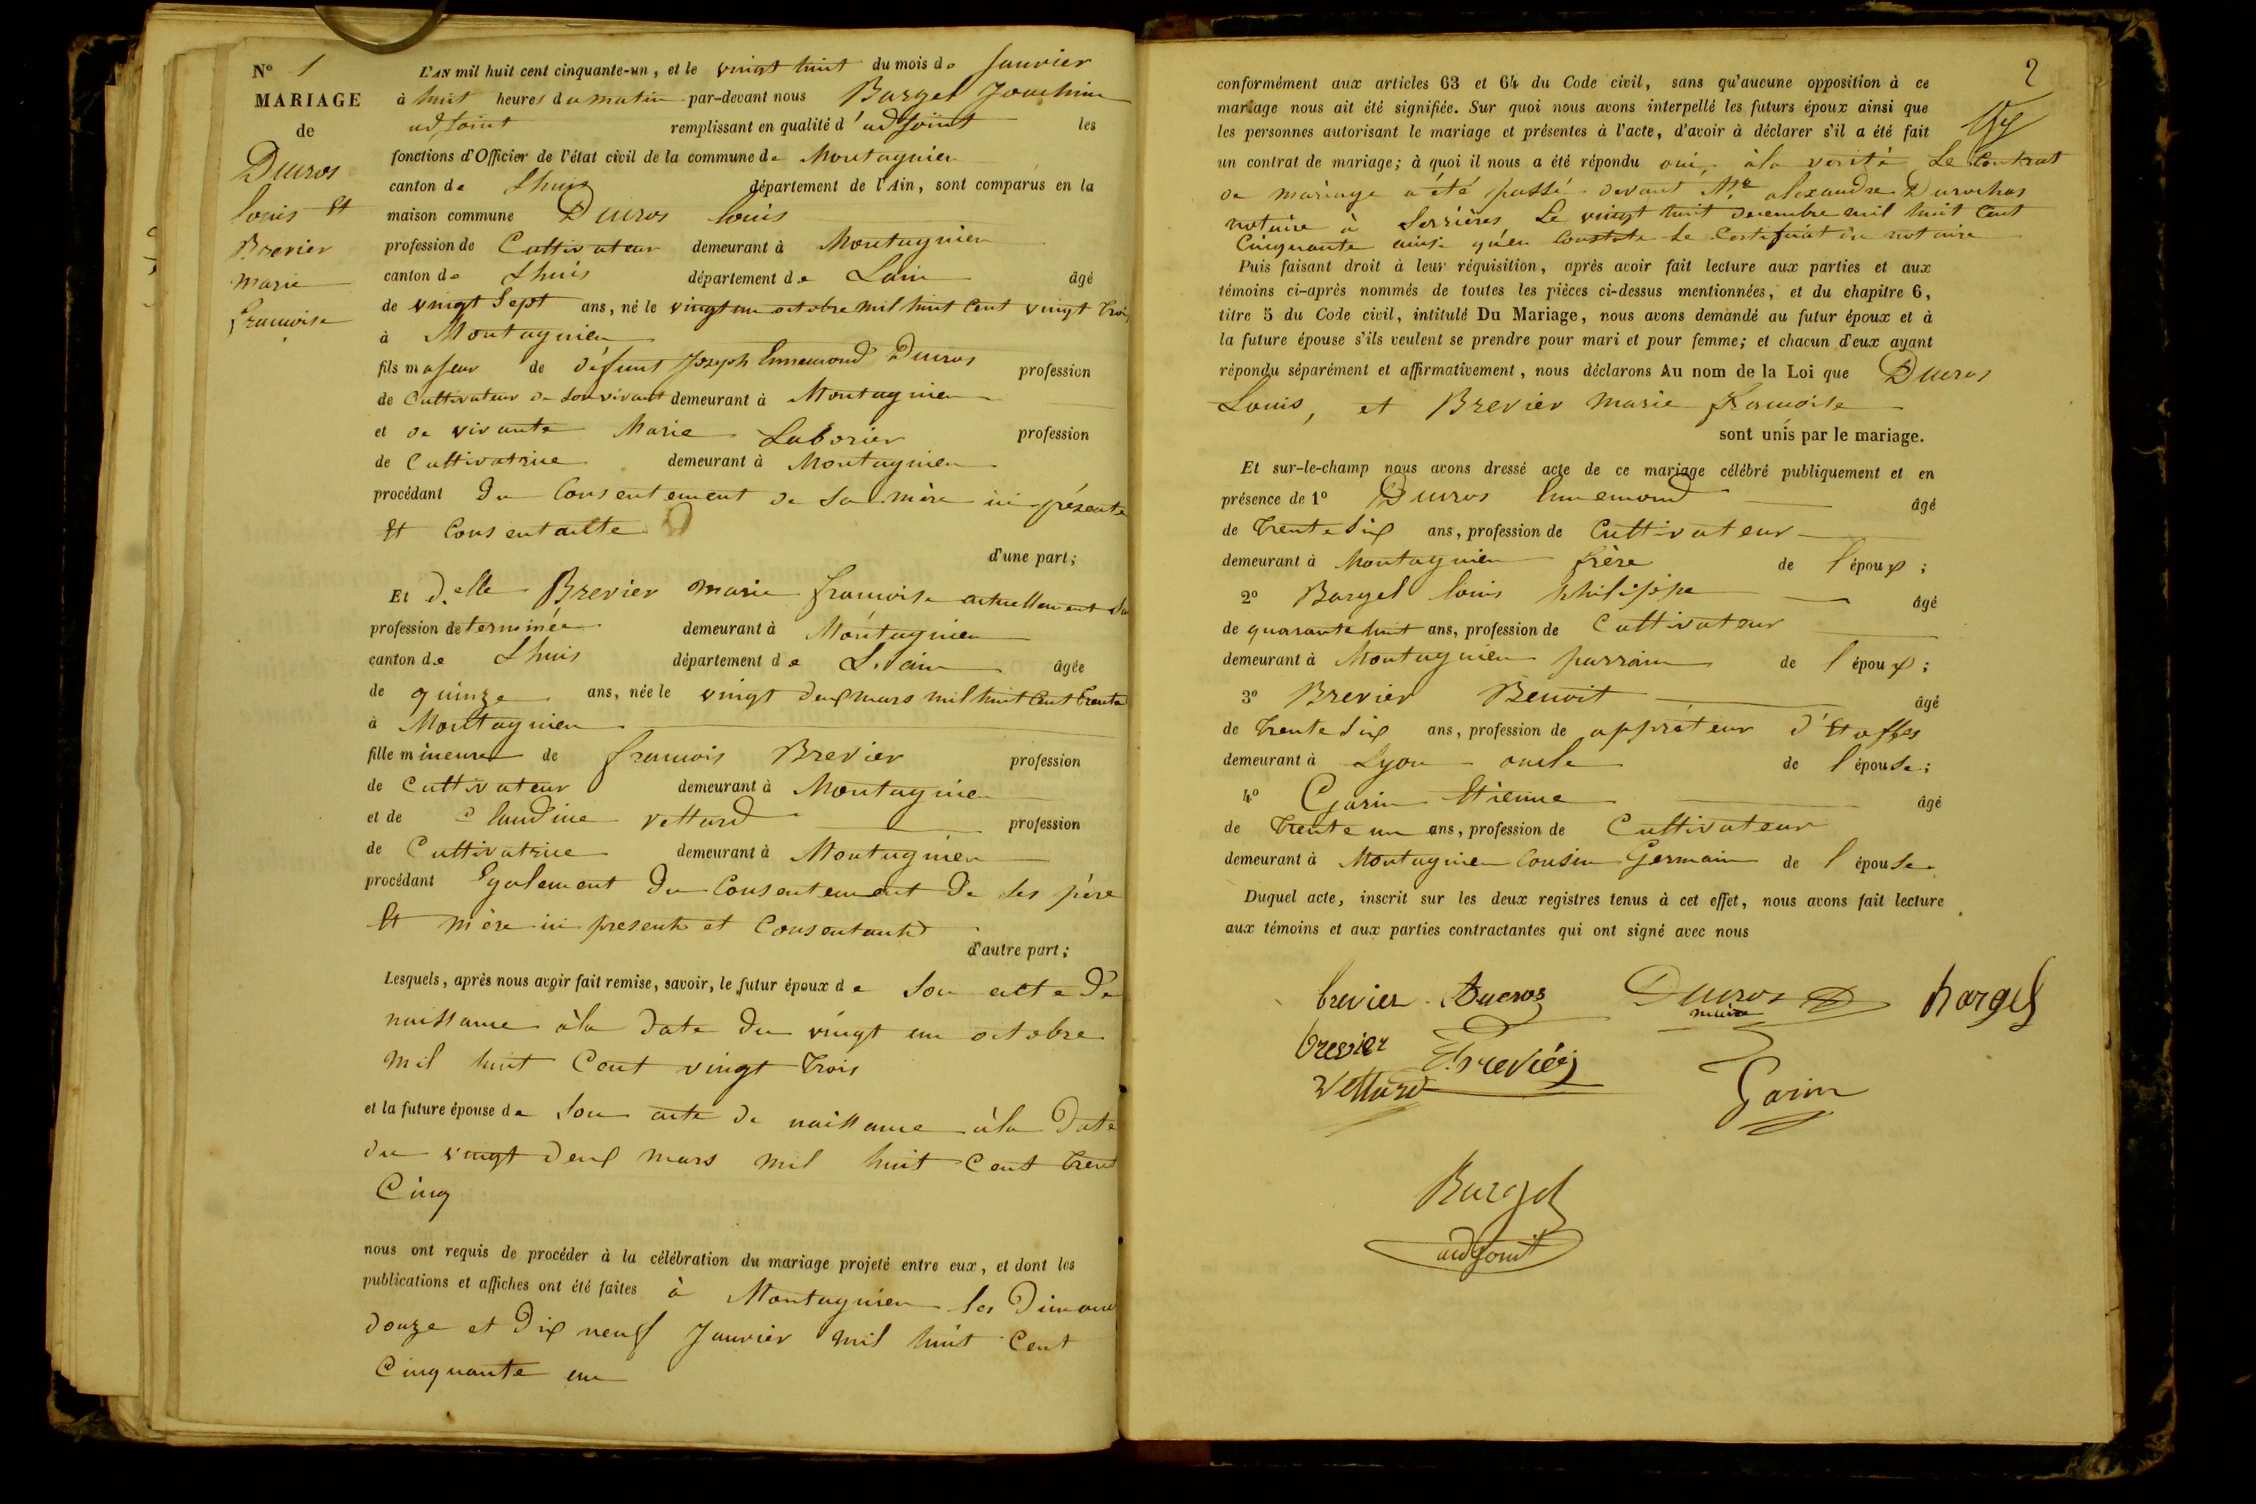 N° 1
MARIAGE
de
Ducros
louis Et
Brevier
marie
francoise
L'AN mil huit cent cinquante-un, et le vingt huit du mois de Janvier
à huit heures du matin par-devant nous Bargel Joachim
adjoint remplissant en qualité d'adjoint les
fonctions d'Officier de l'état civil de la commune de Montagnieu
canton de Lhuis département de l'Ain, sont comparus en la
maison commune Ducros louis
profession de Cultivateur demeurant à Montagnieu
canton de Lhuis département de Lain âgé
de vingt Sept ans, né le vingt un octobre mil huit Cent vingt trois
à Montagnieu
fils majeur de défunt Joseph Ennemond Ducros profession
de Cultivateur de Son vivant demeurant à Montagnieu
et de vivante Marie Laborier profession
de Cultivatrice demeurant à Montagnieu
procédant du Consentement de Sa mère ici présente
Et Consentante
d'une part;
Et d.elle Brevier marie francoise actuellement Sa
profession determinée demeurant à Montagnieu
canton de Lhuis département de L'ain âgée
de quinze ans, née le vingt deux mars mil huit Cent trente
à Montagnieu
fille mineure de francois Brevier profession
de Cultivateur demeurant à Montagnieu
et de Claudine vettard profession
de Cultivatrice demeurant à Montagnieu
procédant Egalement du Consentement de Ses père
Et mère ici presents et Consentants
d'autre part;
Lesquels, après nous avoir fait remise, savoir, le futur époux de Son acte de
naissance à la date du vingt un octobre
mil huit Cent vingt trois
et la future épouse de Son acte de naissance à la Date
du vingt deux mars mil huit Cent trent
Cinq
nous ont requis de procéder à la célébration du mariage projeté entre eux, et dont les
publications et affiches ont été faites à Montagnieu les Dimanc
douze et dix neuf Janvier mil huit Cent
Cinquante un
2
conformément aux articles 63 et 64 du Code civil, sans qu'aucune opposition à ce
mariage nous ait été signifiée. Sur quoi nous avons interpellé les futurs époux ainsi que
les personnes autorisant le mariage et présentes à l'acte, d'avoir à déclarer s'il a été fait
un contrat de mariage; à quoi il nous a été répondu oui, à la verité Le Contrat
de mariage a été passé devant Me alexandre Durochas
notaire à Serrières Le vingt huit decembre mil huit Cent
Cinquante ainsi qu'en Constate Le Certificat du notaire
Puis faisant droit à leur réquisition, après avoir fait lecture aux parties et aux
témoins ci-après nommés de toutes les pièces ci-dessus mentionnées, et du chapitre 6,
titre 5 du Code civil, intitulé Du Mariage, nous avons demandé au futur époux et à
la future épouse s'ils veulent se prendre pour mari et pour femme; et chacun d'eux ayant
répondu séparément et affirmativement, nous déclarons Au nom de la Loi que Ducros
Louis, et Brevier marie francoise
sont unis par le mariage.
Et sur-le-champ nous avons dressé acte de ce mariage célébré publiquement et en
présence de 1° Ducros Ennemond âgé
de trente Six ans, profession de Cultivateur
demeurant à Montagnieu frère de l'époux;
2° Bargel louis philippe âgé
de quarante huit ans, profession de Cultivateur
demeurant à Montagnieu parrain de l'époux;
3° Brevier Benoit âgé
de trente Six ans, profession de appréteur d'Etoffes
demeurant à Lyon oncle de l'épouse;
4° Garin Etienne âgé
de trente un ans, profession de Cultivateur
demeurant à Montagnieu Cousin Germain de l'épouse
Duquel acte, inscrit sur les deux registres tenus à cet effet, nous avons fait lecture
aux témoins et aux parties contractantes qui ont signé avec nous
brevier Ducros Ducros bargel
maire
brevier Brevier
Vettard Garin
Bargel
adjoint